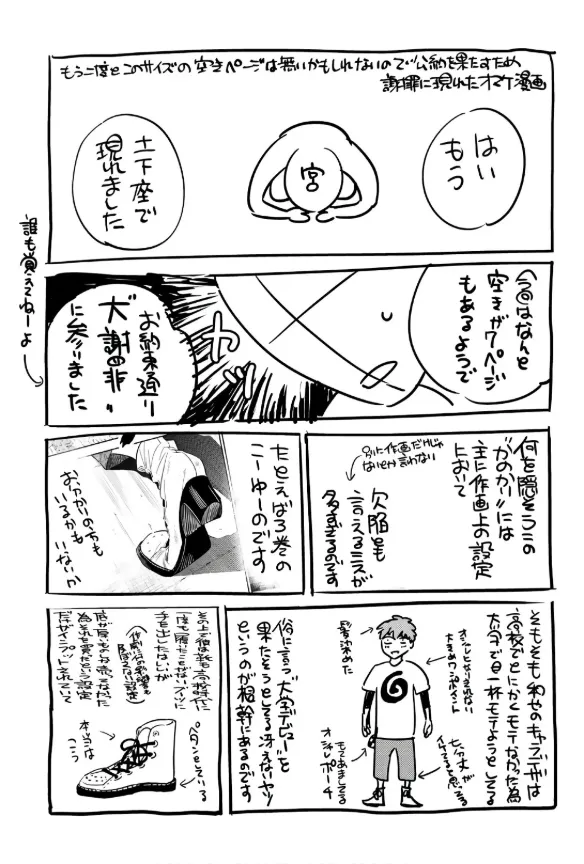 もう二度とこのサイズの空きページは無いかもしれないので公約を果たすため
謝罪に現れたオマケ漫画
はい
もう
宮
土下座で
現れました
誰も覚えてねーよ
今回はなんと
空きが7ページ
もあるようで
カッ
お約束通り
"大謝罪"
に参りました
何を隠そうこの
"かのかり"には
主に作画上の設定
において
別に作画だけじゃ
ないとか言わない
欠陥とも
言えるミスが
多すぎるのです
たとえば3巻の
こーゆーのです
おわかりの方も
いるかも
いないか
そもそも和也のキャラデザは
高校でとにかくモテなかった為
大学で目一杯モテようとしてる
髪染めた
オシャレとなりきれない
大きめのシルバメント
七分丈が
イケてると思ってる
もてあましてる
オシャレポーチ
俗に言う"大学デビュー"を
果たそうとしてる冴えないヤツ
というのが根幹にあるのです
その上で彼は靴も高校時代に
一度も履いたことがないブーツに
手を出したはいいが
底が厚いものはお高かった
為それを買ったという設定
だがインプットされていて
ペタンとしている
本当は
こう